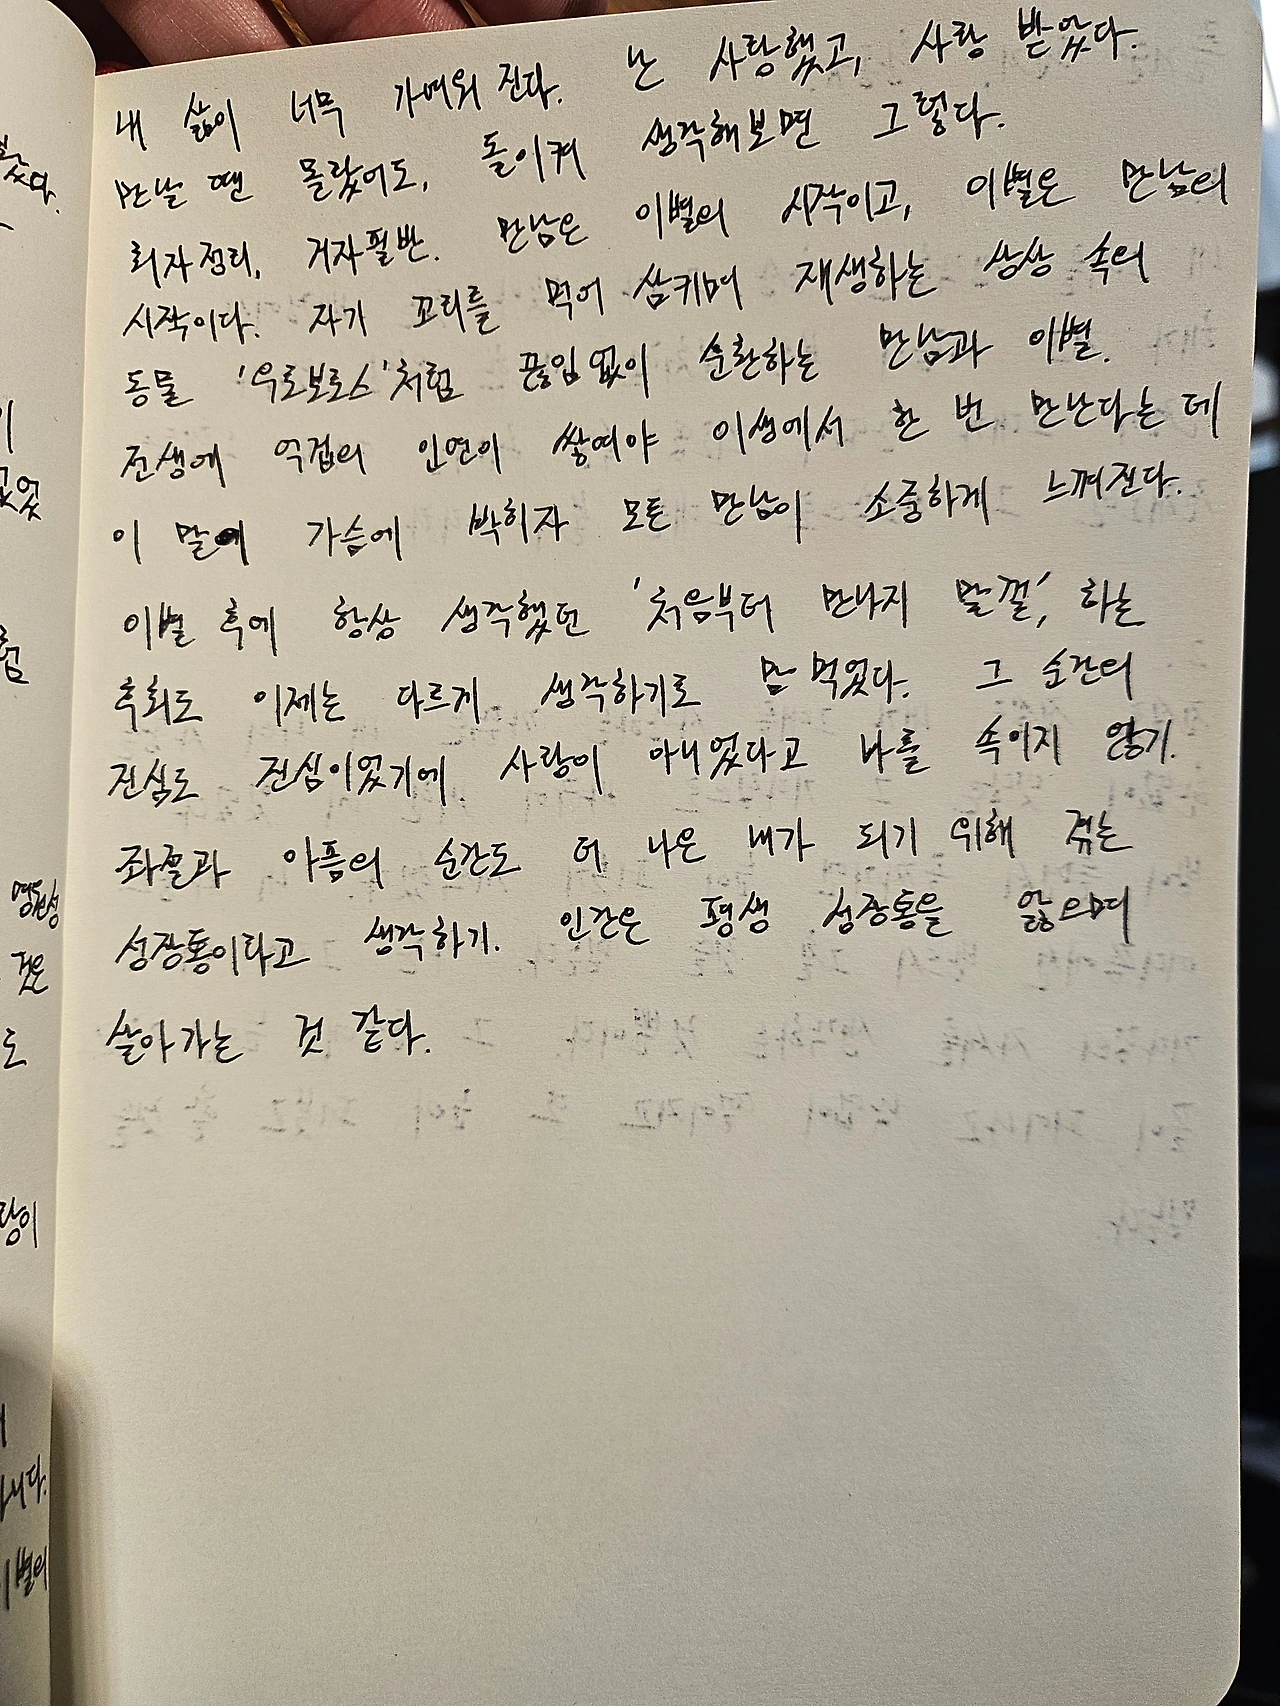 내 삶이 너무 가여워 진다. 난 사랑했고, 사랑 받았다.
만날 땐 몰랐어도, 돌이켜 생각해보면 그렇다.
회자정리, 거자필반. 만남은 이별의 시작이고, 이별은 만남의
시작이다. 자기 꼬리를 먹어 삼키며 재생하는 상상 속의
동물 '우로보로스'처럼 끊임없이 순환하는 만남과 이별.
전생에 억겁의 인연이 쌓여야 이생에서 한 번 만난다는 데
이 말에 가슴에 박히자 모든 만남이 소중하게 느껴진다.
이별 후에 항상 생각했던 '처음부터 만나지 말껄', 하는
후회도 이제는 다르게 생각하기로 맘 먹었다. 그 순간의
진심도 진심이었기에 사랑이 아니었다고 나를 속이지 않기.
좌절과 아픔의 순간도 더 나은 내가 되기 위해 겪는
성장통이라고 생각하기. 인간은 평생 성장통을 앓으며
살아가는 것 같다.